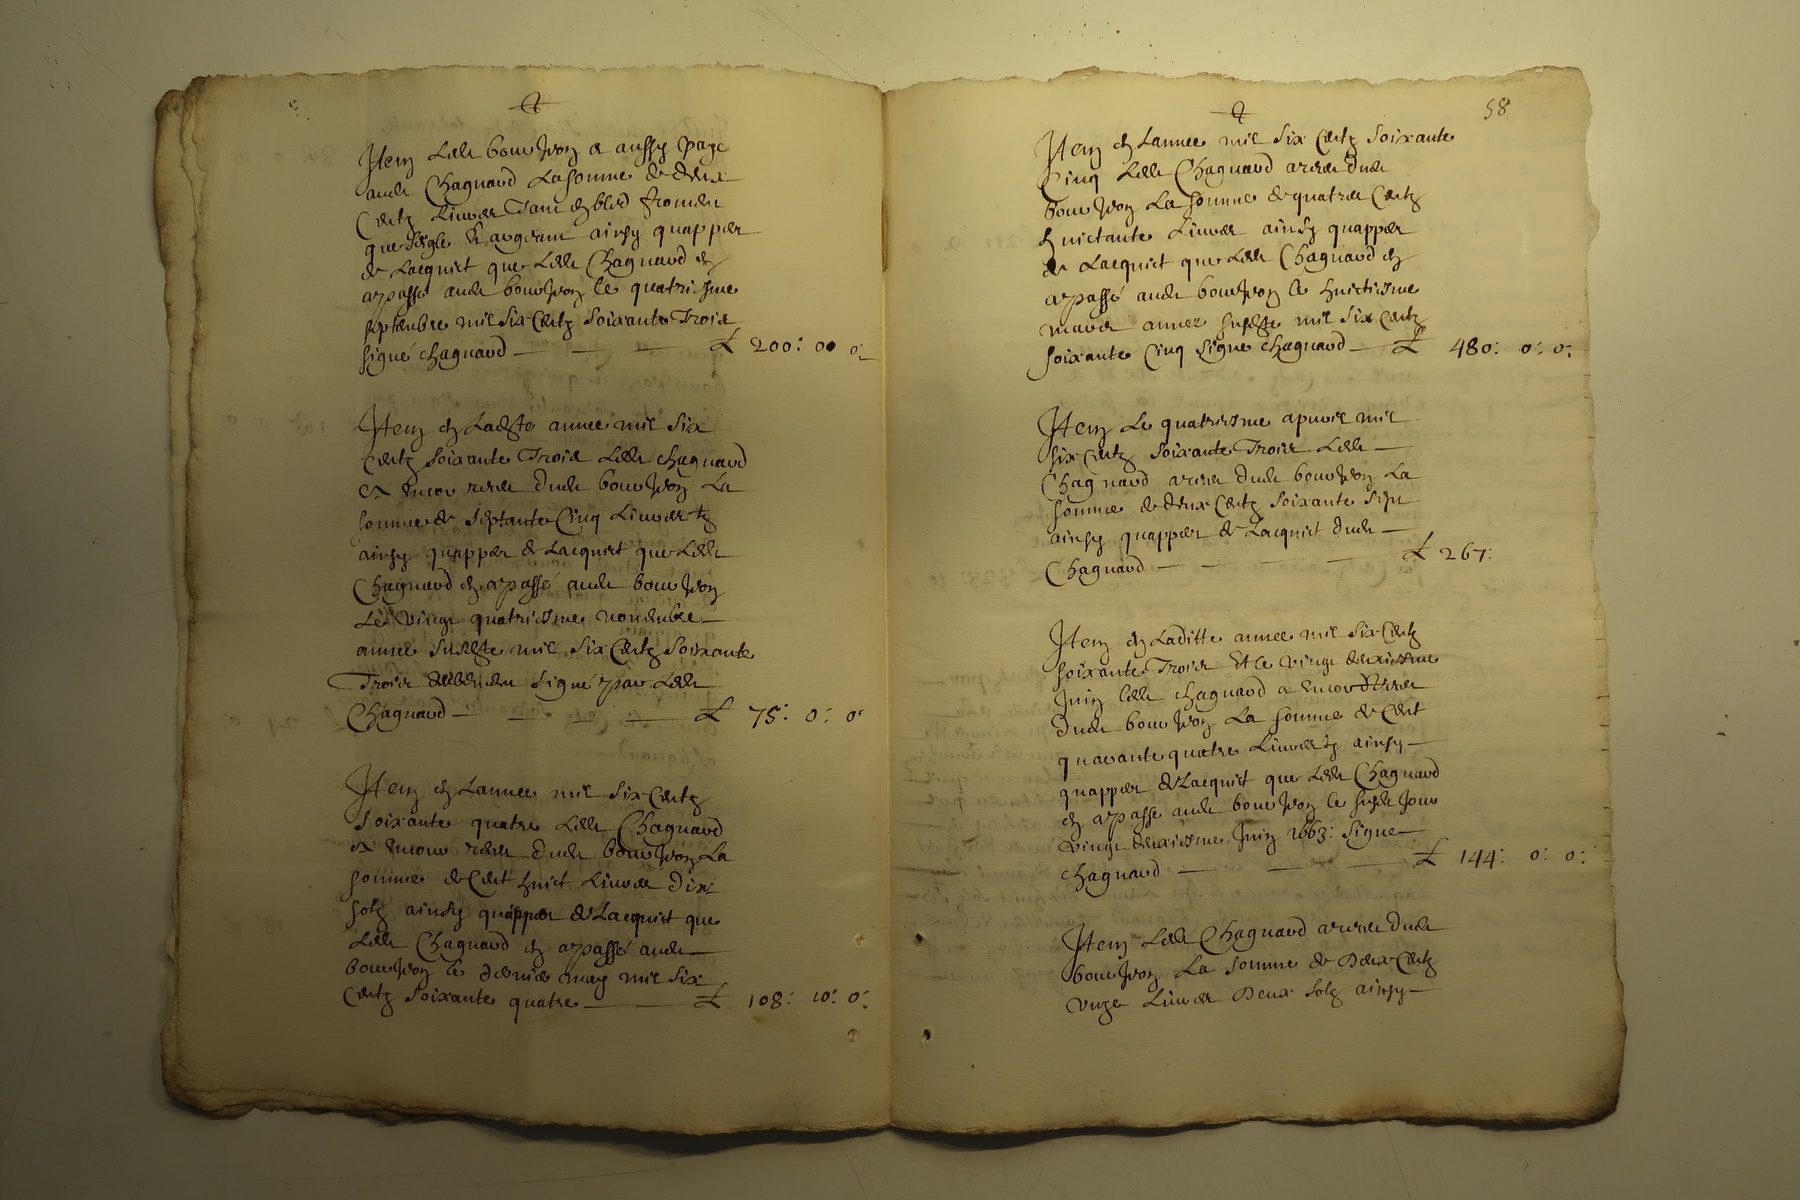 Item Ledt bourjvon a aussy paye
audt Chagnard La somme de deux
Centz Livres Tant en bled froment
que seigle & argent ainsy quapper
de Lacquict que Ledt Chagnard en
a passé audt bourjvon le quatriesme
septembre mil Six Centz Soixante Trois
signé chagnard — — — £ 200: 00 0:
Item en Ladste annee mil Six
Centz Soixante Trois Ledt chagnard
a encor receu dudt bourjvon La
somme de Septante Cinq Livres tz
ainsy quapper de Lacquict que Ledt
Chagnard en a passé audt bourjvon
Le Vingt quatriesme novembre
annee susdste mil Six Centz Soixante
Trois signé par Ledt
Chagnard — — — £ 75: 0: 0:
Item en Lannee mil Six Centz
Soixante quatre Ledt Chagnard
a encour receu dudt bourjvon La
somme de Cent huict Livres dix
solz ainsy quapper de Lacquict que
Ledt Chagnard en a passé audt
bourjvon le dernier may mil six
Centz Soixante quatre — — £ 108: 10: 0:
58
Item en Lannee mil Six Centz Soixante
Cinq Ledt Chagnard a receu dudt
bourjvon La somme de quatre Centz
huictante Livres ainsy quapper
de Lacquict que Ledt Chagnard en
a passé audt bourjvon le huictiesme
mars annee susdste mil Six Centz
soixante Cinq Signe chagnard — £ 480: 0: 0:
Item Le quatriesme apvril mil
Six Centz Soixante Trois Ledt
Chagnard a receu dudt bourjvon La
somme de deux Centz Soixante Sept
ainsy quapper de Lacquict dudt
Chagnard — — — £ 267:
Item en Laditte annee mil Six Centz
soixante Trois Et le vingt deuxiesme
Juin ledt chagnard a encor receu
Dudt bourjvon La somme de Cent
quarante quatre Livres tz ainsy
quapper de Lacquict que Ledt Chagnard
en a passé audt bourjvon le susdt Jour
vingt deuxiesme Juin 1663: Signe
chagnard — — — £ 144: 0: 0:
Item Ledt Chagnard a receu dudt
bourjvon La somme de Deux Centz
unze Livres Deux solz ainsy